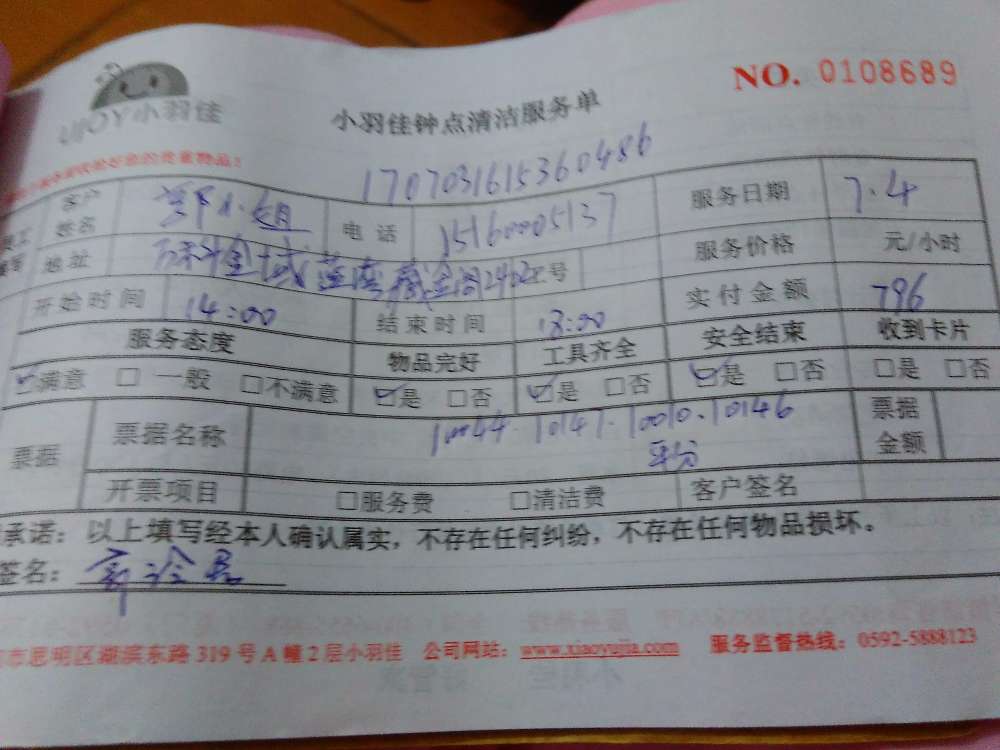 NO. 0108689
UJOY小羽佳
小羽佳钟点清洁服务单
1707031615360486
客户姓名 小姐 电话 15160005137 服务日期 7.4
地址 万科金域蓝湾 号 服务价格 元/小时
开始时间 14:00 结束时间 18:00 实付金额 796
服务态度 物品完好 工具齐全 安全结束 收到卡片
☑满意 □一般 □不满意 ☑是 □否 ☑是 □否 ☑是 □否 □是 □否
票据 票据名称 10044.10147.10010.10146 票据金额
平分
开票项目 □服务费 □清洁费 客户签名
承诺：以上填写经本人确认属实，不存在任何纠纷，不存在任何物品损坏。
签名：
市思明区湖滨东路319号A幢2层小羽佳 公司网站：www.xiaoyujia.com 服务监督热线：0592-5888123